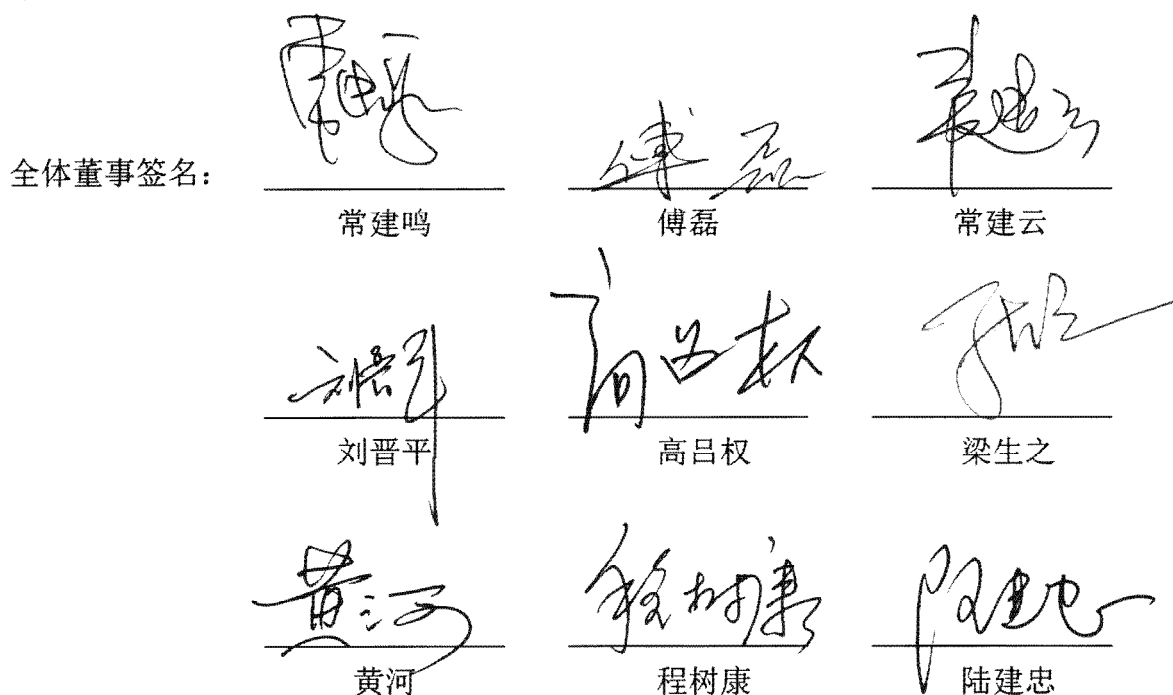 全体董事签名：
常建鸣 傅磊 常建云
刘晋平 高吕权 梁生之
黄河 程树康 陆建忠